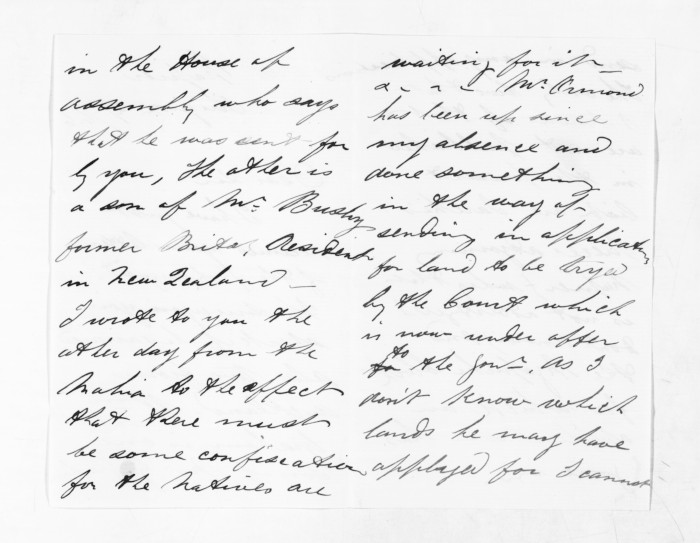 in the House of
assembly who says
that he was sent for
by you, the other is
a son of Mr. Busby
former Brits. Resident
in New Zealand –
I wrote to you the
other day from the
Mahia to the effect
that there must
be some confiscation
for the Natives are
waiting for it –
Mr. Ormond
has been up since
my absence and
done something
in the way of
sending in application
for land to be tryed
by the Court which
is now under offer
to the Govt. As I
don't know which
lands he may have
applyed for I cannot